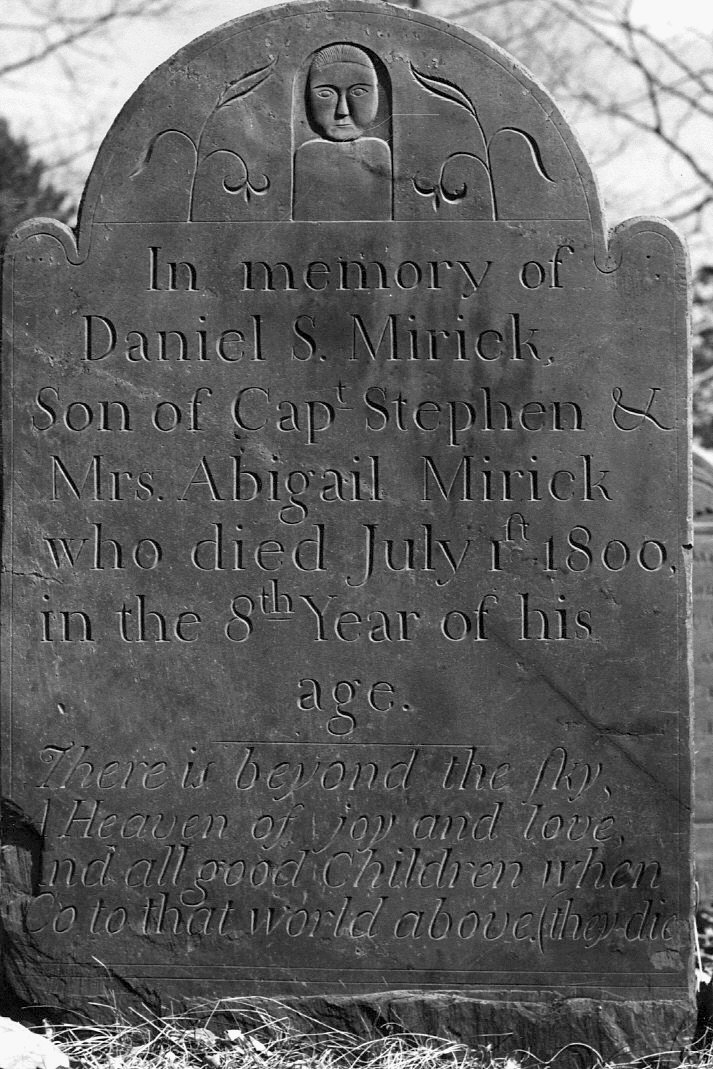 In memory of
Daniel S. Mirick,
Son of Capᵗ Stephen &
Mrs. Abigail Mirick
who died July 1ſt 1800,
in the 8th Year of his
age.
There is beyond the ſky,
A Heaven of joy and love,
And all good Children when
Go to that world above. (they die